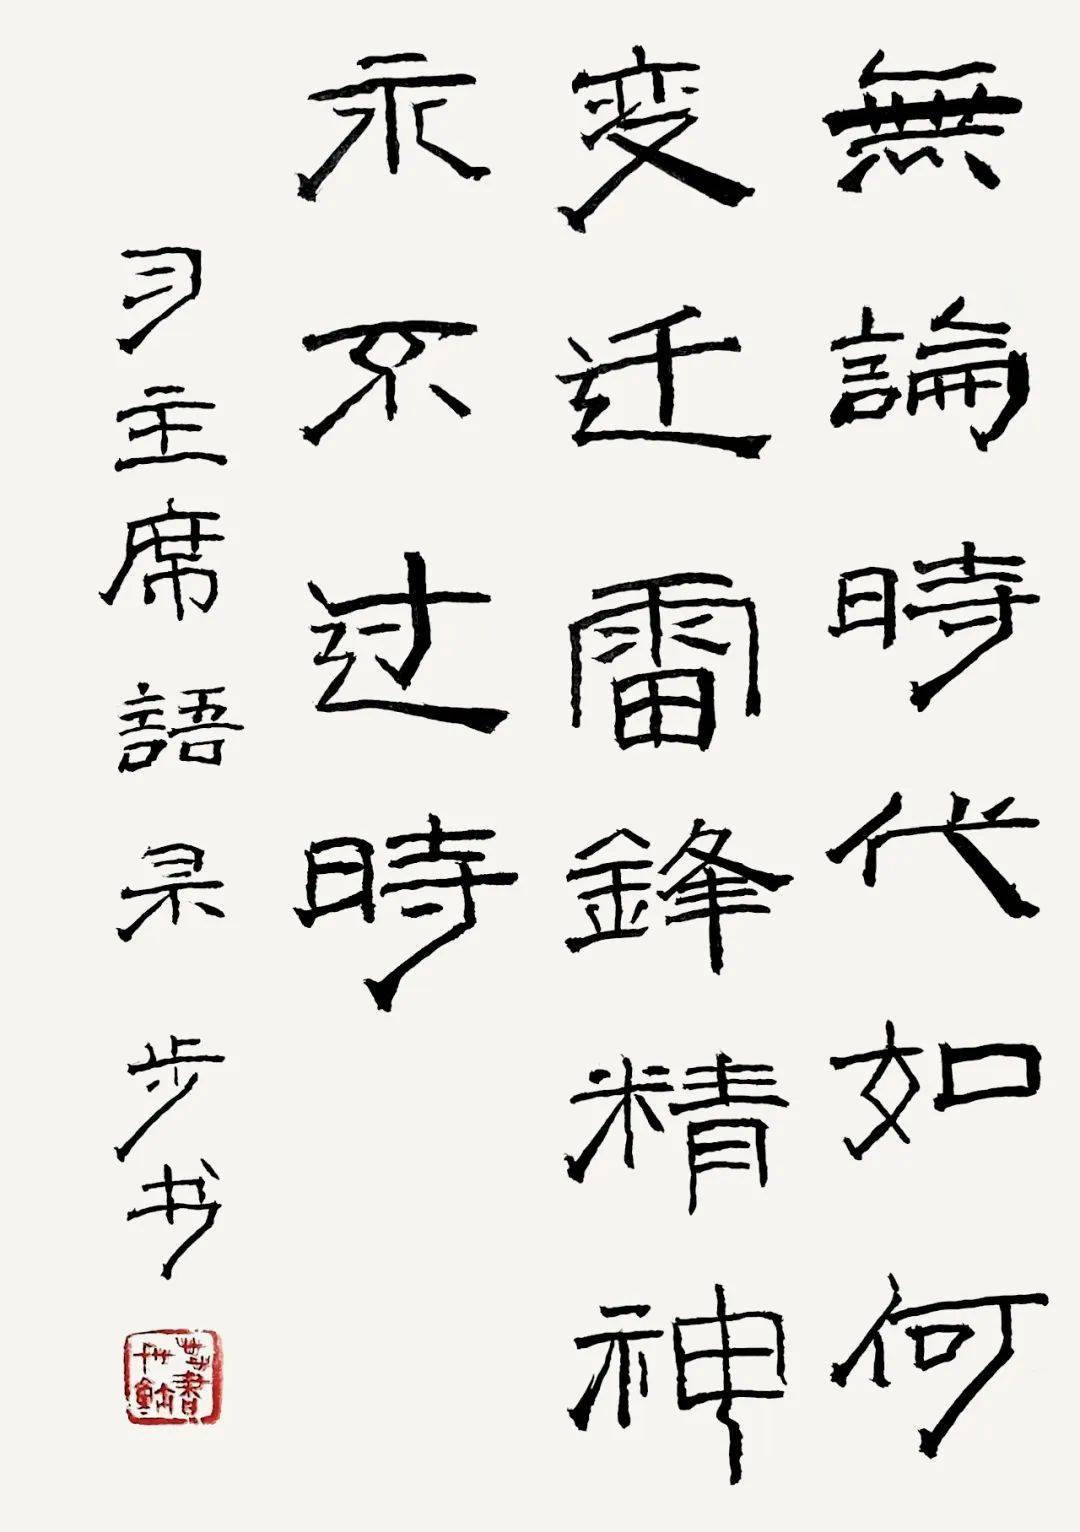 無論時代如何
变迁雷鋒精神
永不过時
习主席語录 步书